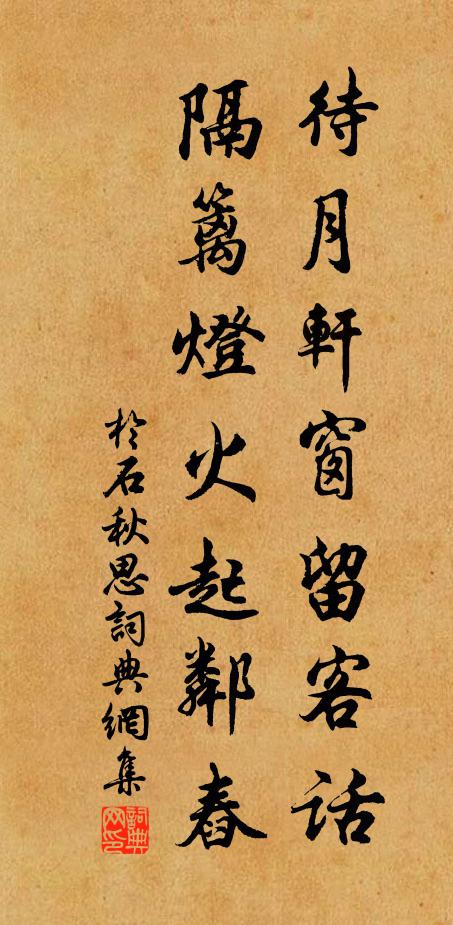 待月軒窗留客話
隔籬燈火起鄰舂
於石秋思詞典網集
詞典网印